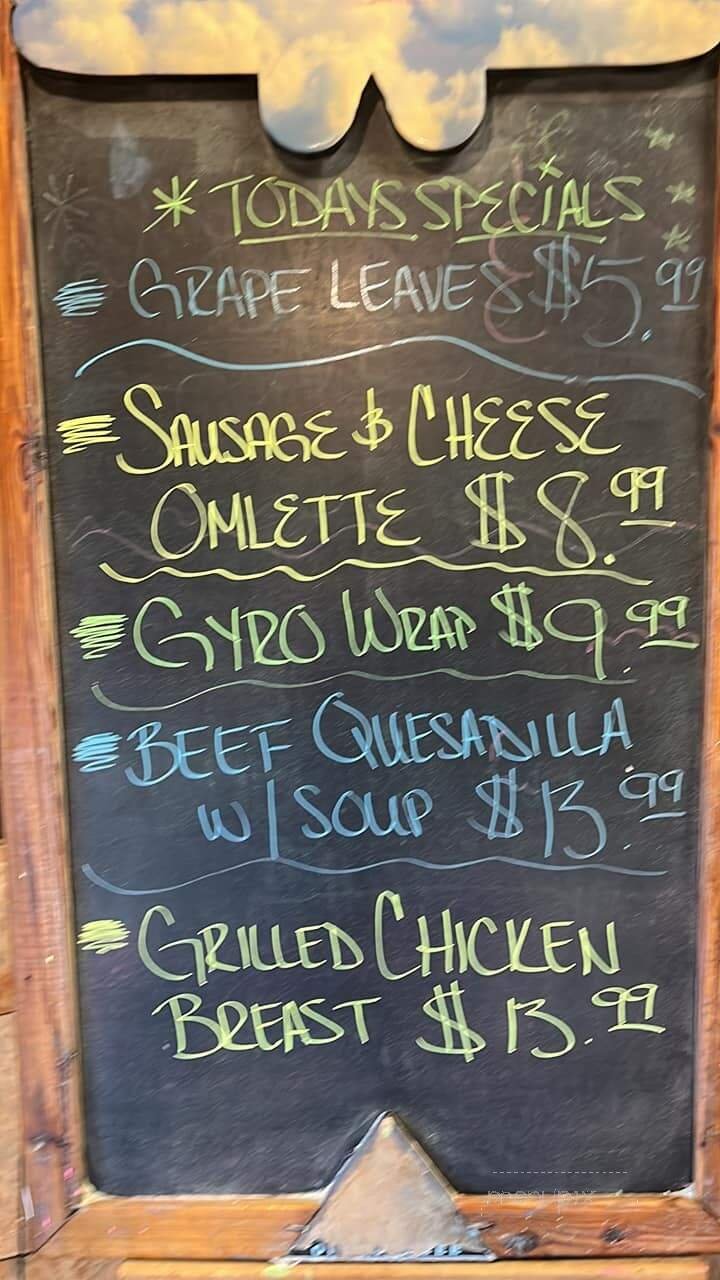 * TODAYS SPECIALS
GRAPE LEAVES $5.99
SAUSAGE & CHEESE
OMLETTE $8.99
GYRO WRAP $9.99
BEEF QUESADILLA
W/ SOUP $13.99
GRILLED CHICKEN
BREAST $13.99